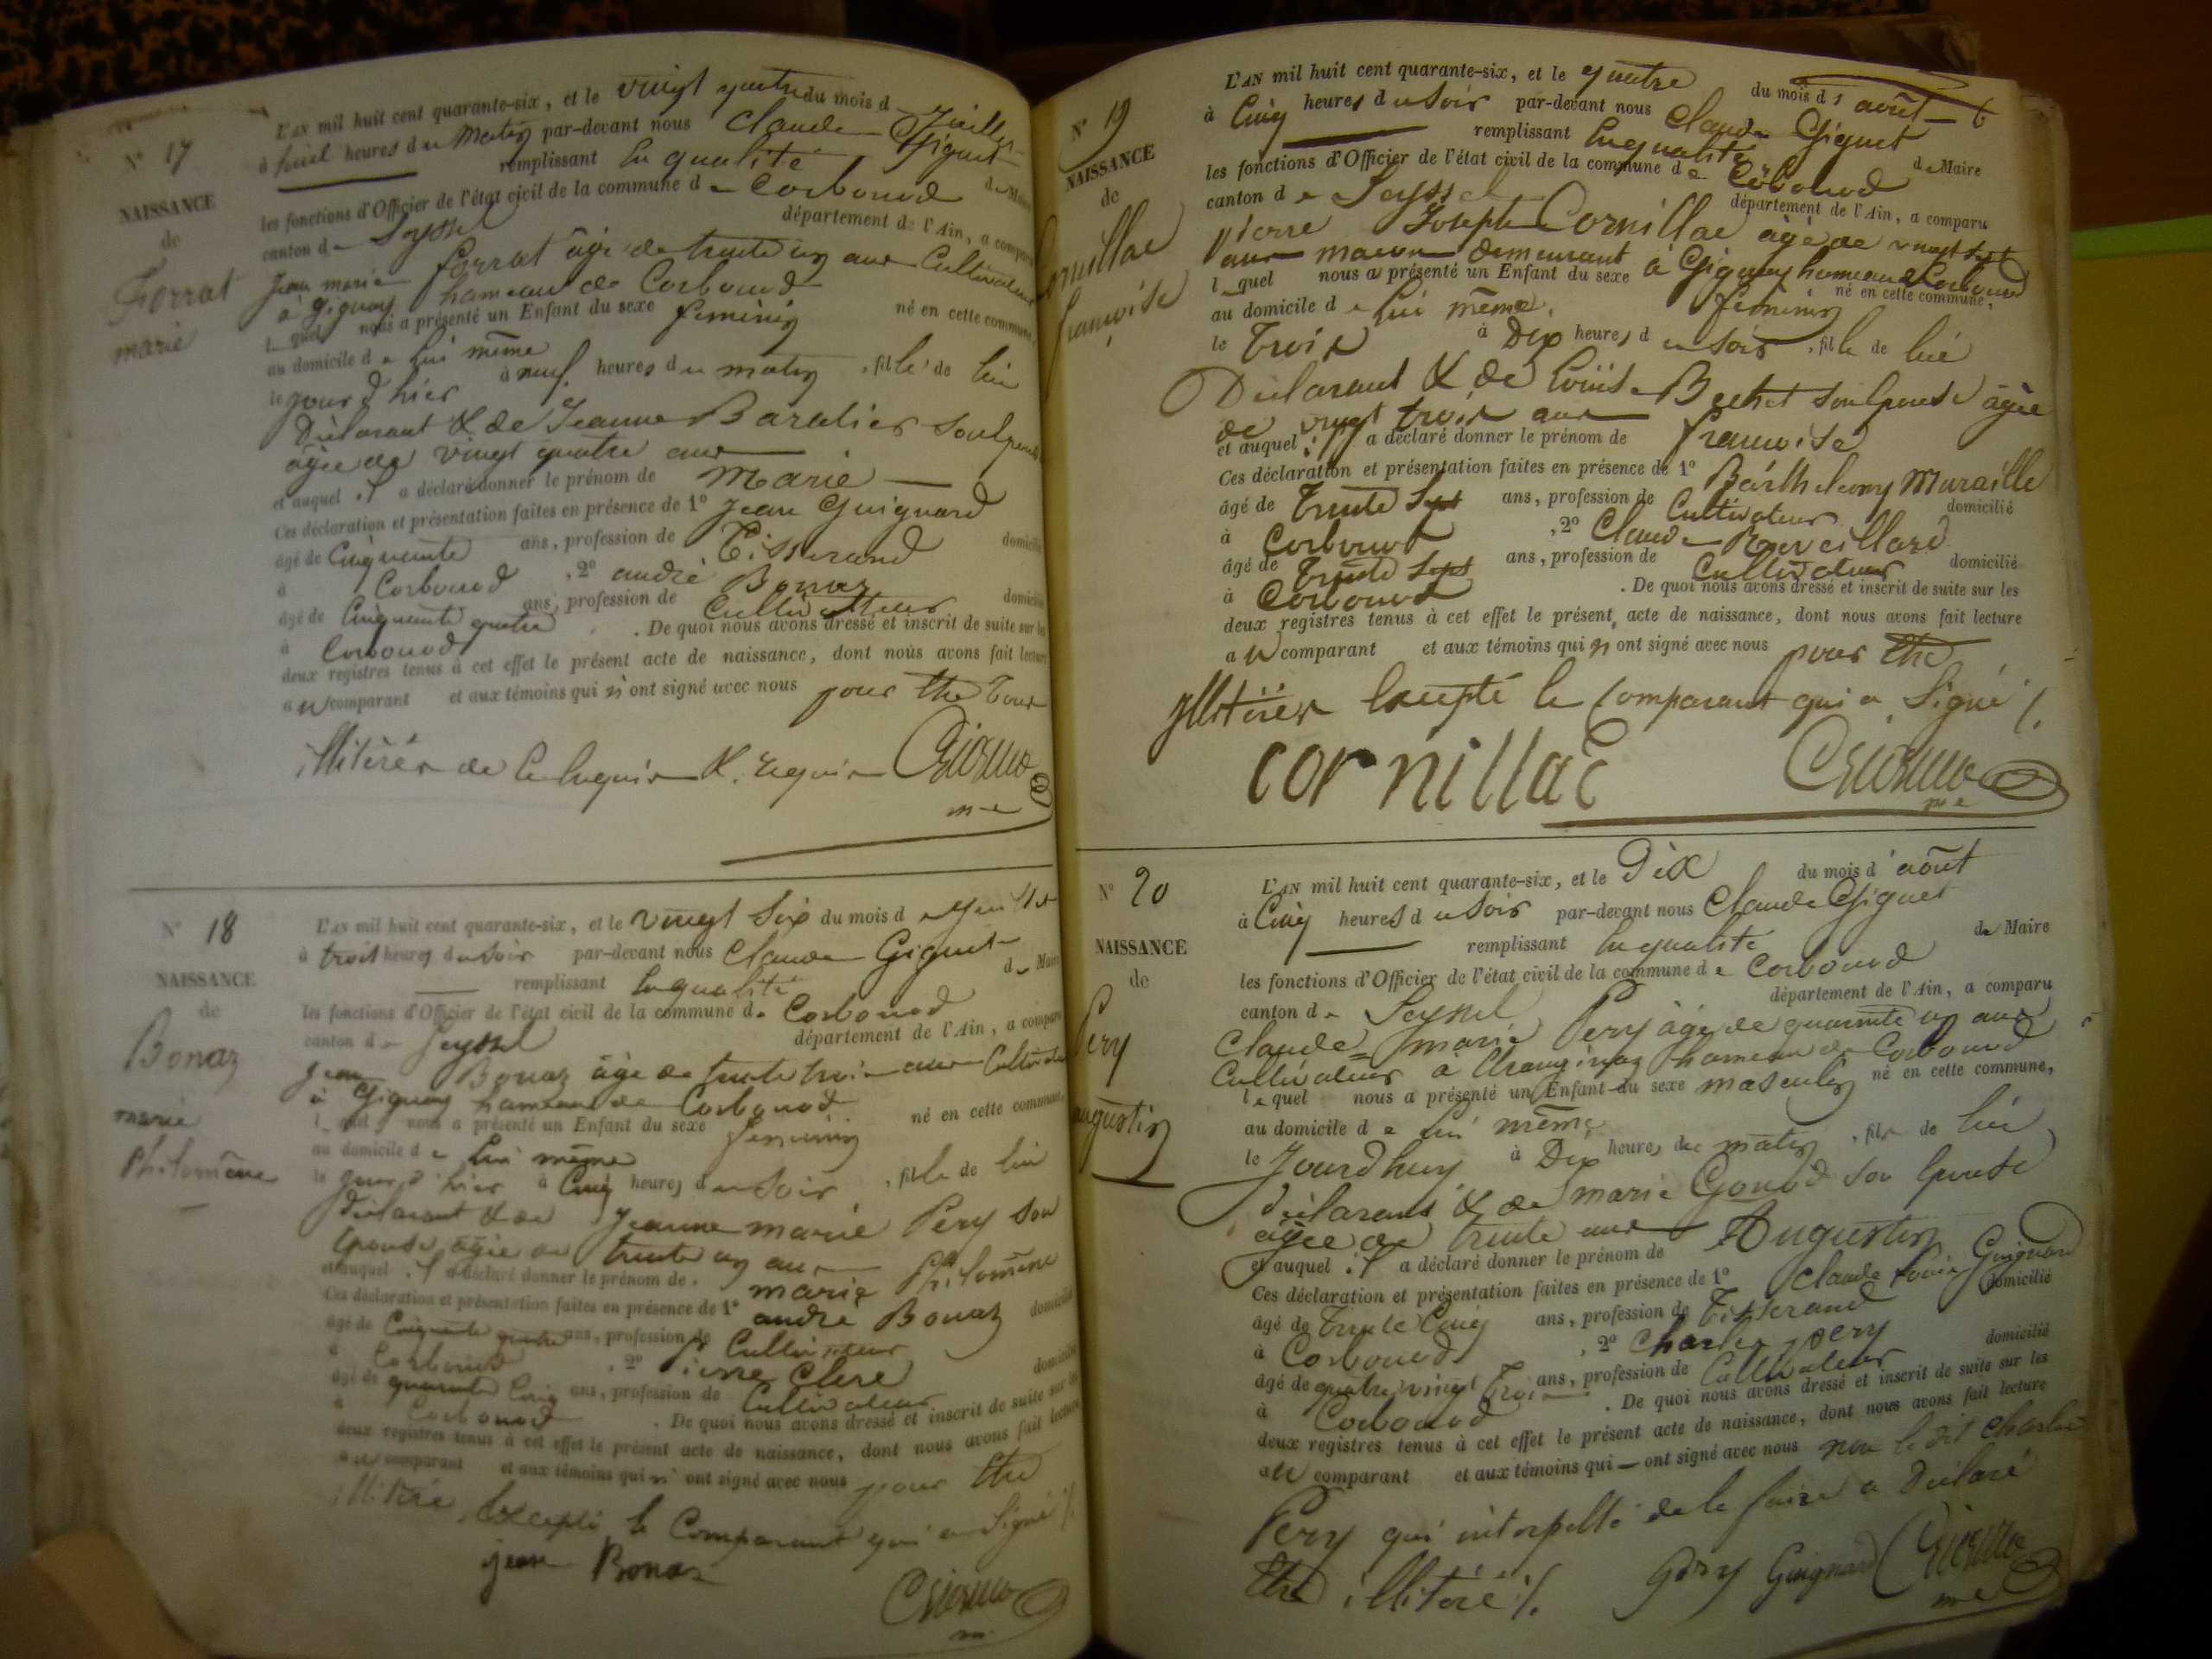 N° 17
NAISSANCE
de
Forrat
marie
L'AN mil huit cent quarante-six, et le vingt quatre du mois d Juillet
à heures du Matin par-devant nous Claude Giguet
remplissant En qualité de Maire
les fonctions d'Officier de l'état civil de la commune de Corbonod
canton de Seyssel département de l'Ain, a comparu
Jean marie forrat âgé de trente un ans Cultivateur
à Gignay hameau de Corbonod
l quel nous a présenté un Enfant du sexe féminin né en cette commune,
au domicile de lui même
le jour d'hier à neuf heures du matin, fille de lui
Déclarant & de Jeanne Baralier son épouse
âgée de vingt quatre ans
et auquel il a déclaré donner le prénom de Marie
Ces déclaration et présentation faites en présence de 1° Jean Guignard
âgé de Cinquante ans, profession de Tisserand domicilié
à Corbonod, 2° andré Bonaz
âgé de Cinquante quatre ans, profession de Cultivateur domicilié
à Corbonod. De quoi nous avons dressé et inscrit de suite sur les
deux registres tenus à cet effet le présent acte de naissance, dont nous avons fait lecture
au comparant et aux témoins qui n'ont signé avec nous pour être tous
illitérés de ce Enquis & requis
m e
N° 18
NAISSANCE
de
Bonaz
marie
Philomène
L'AN mil huit cent quarante-six, et le vingt six du mois de Juillet
à trois heures du soir par-devant nous Claude Giguet
remplissant En qualité de Maire
les fonctions d'Officier de l'état civil de la commune de Corbonod
canton de Seyssel département de l'Ain, a comparu
Jean Bonaz âgé de trente trois ans Cultivateur
à Gignay hameau de Corbonod
l quel nous a présenté un Enfant du sexe féminin né en cette commune
au domicile de lui même
le jour d'hier à Cinq heures du soir, fille de lui
Déclarant & de Jeanne marie Pery son
épouse âgée de trente un ans
et auquel il a déclaré donner le prénom de marie Philomène
Ces déclaration et présentation faites en présence de 1° andré Bonaz
âgé de Cinquante quatre ans, profession de Cultivateur domicilié
à Corbonod, 2° Pierre Clerc
âgé de quarante Cinq ans, profession de Cultivateur domicilié
à Corbonod. De quoi nous avons dressé et inscrit de suite sur les
deux registres tenus à cet effet le présent acte de naissance, dont nous avons fait lecture
au comparant et aux témoins qui n'ont signé avec nous pour être
illitéré, Excepté le Comparant qui a Signé /.
jean Bonaz
m
N° 19
NAISSANCE
de
Cornillac
françoise
L'AN mil huit cent quarante-six, et le quatre du mois d'août
à Cinq heures du Soir par-devant nous Claude Giguet
remplissant En qualité de Maire
les fonctions d'Officier de l'état civil de la commune de Corbonod
canton de Seyssel département de l'Ain, a comparu
Pierre Joseph Cornillac âgé de vingt sept
ans maçon demeurant à Gignay hameau de Corbonod
l quel nous a présenté un Enfant du sexe féminin né en cette commune,
au domicile de lui même,
le trois à Dix heures du soir, fille de lui
Déclarant & de Louise Bechet son épouse âgée
de vingt trois ans
et auquel il a déclaré donner le prénom de françoise
Ces déclaration et présentation faites en présence de 1° Barthelemy Muraille
âgé de trente sept ans, profession de Cultivateur domicilié
à Corbonod, 2° Claude Raveillard
âgé de trente sept ans, profession de Cultivateur domicilié
à Corbonod. De quoi nous avons dressé et inscrit de suite sur les
deux registres tenus à cet effet le présent, acte de naissance, dont nous avons fait lecture
au comparant et aux témoins qui n'ont signé avec nous pour être
illitérés Excepté le Comparant qui a Signé /.
cornillac
m e
N° 20
NAISSANCE
de
Pery
augustin
L'AN mil huit cent quarante-six, et le Dix du mois d'août
à Cinq heures du Soir par-devant nous Claude Giguet
remplissant En qualité de Maire
les fonctions d'Officier de l'état civil de la commune de Corbonod
canton de Seyssel département de l'Ain, a comparu
Claude marie Pery âgé de quarante un ans
Cultivateur à hameau de Corbonod
le quel nous a présenté un Enfant du sexe masculin né en cette commune,
au domicile de lui même
le Jourd'huy à Dix heures du matin, fils de lui
Déclarant & de marie Gonod son épouse
âgée de trente ans
et auquel il a déclaré donner le prénom de Augustin
Ces déclaration et présentation faites en présence de 1° Claude Louis Guignard
âgé de Trente Cinq ans, profession de Tisserand domicilié
à Corbonod, 2° Charles pery
âgé de quatre vingt trois ans, profession de Cultivateur domicilié
à Corbonod. De quoi nous avons dressé et inscrit de suite sur les
deux registres tenus à cet effet le présent acte de naissance, dont nous avons fait lecture
au comparant et aux témoins qui ont signé avec nous non le dit Charles
Pery qui interpellé de le faire a Déclaré
être illitéré /. Guignard
m e